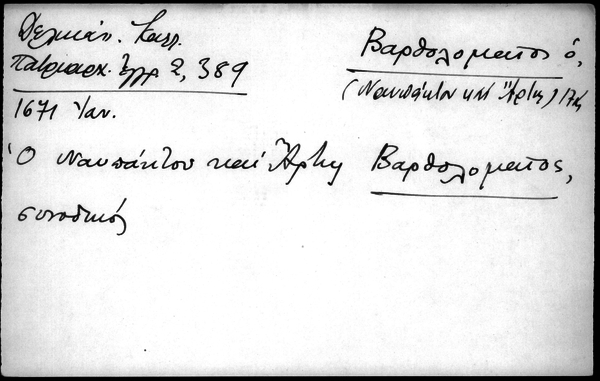 Δελικάν. Καλλ.
Πατριαρχ. Ἔγγρ 2, 389
1671 Ἰαν.
Βαρθολομαῖος ὁ,
(Ναυπάκτου καὶ Ἄρτης) 17ος
Ὁ Ναυπάκτου καὶ Ἄρτης Βαρθολομαῖος,
συνοδικός